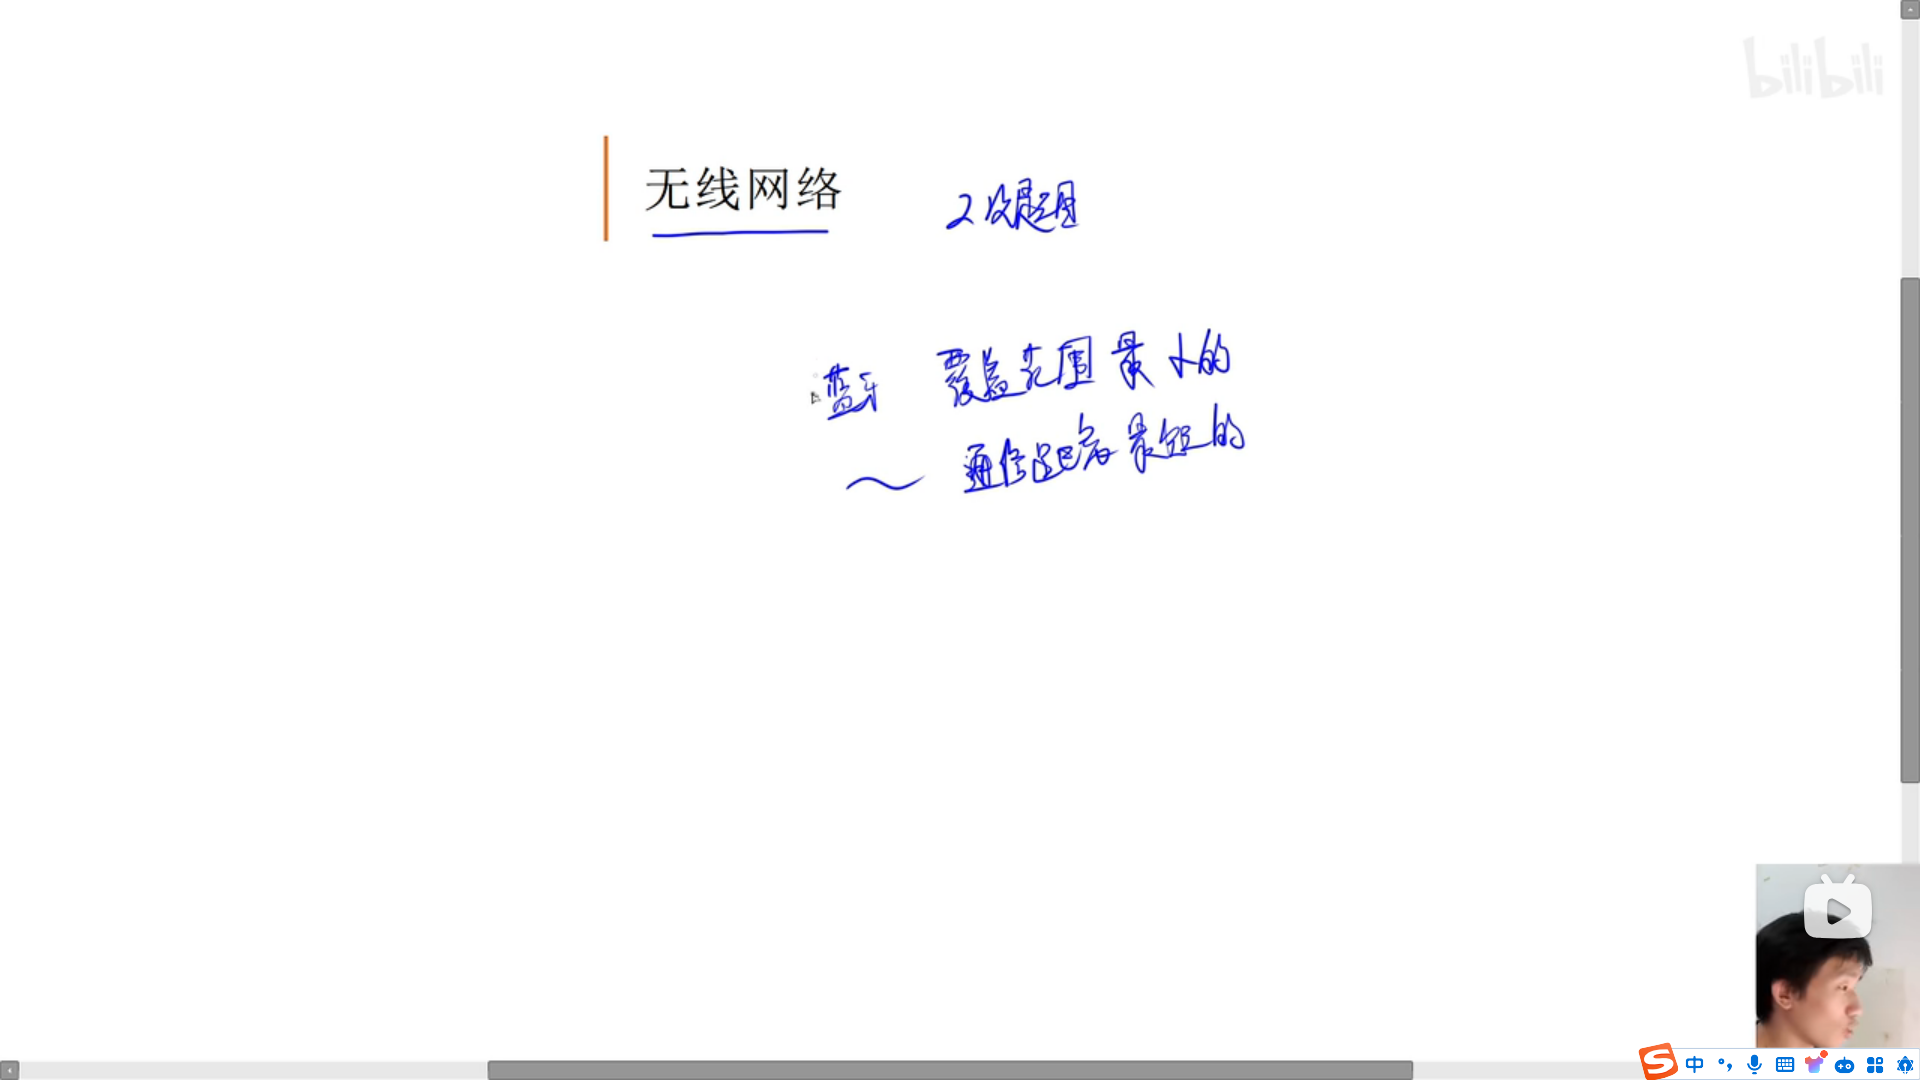 bilibili
无线网络 2次题目
蓝牙 覆盖范围最小的
通信距离最短的
中